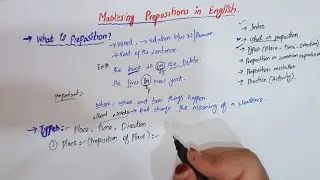 Mastering Prepositions in English.
→ What is Preposition?
→ Word, → relation b/w N/Pronoun
→ Rest of the sentence.
The book is on the table
lives in New York.
Important:
where, when and how things happen.
Short words → but change the meaning of a sentence.
→ Types:- Place, Time, Direction
① Place:- (Preposition of Place):-
→ Intro
→ What is preposition
→ Types (Place - Time - Direction)
→ Preposition in common expression
→ Preposition mistakes
→ Practice (Activity).